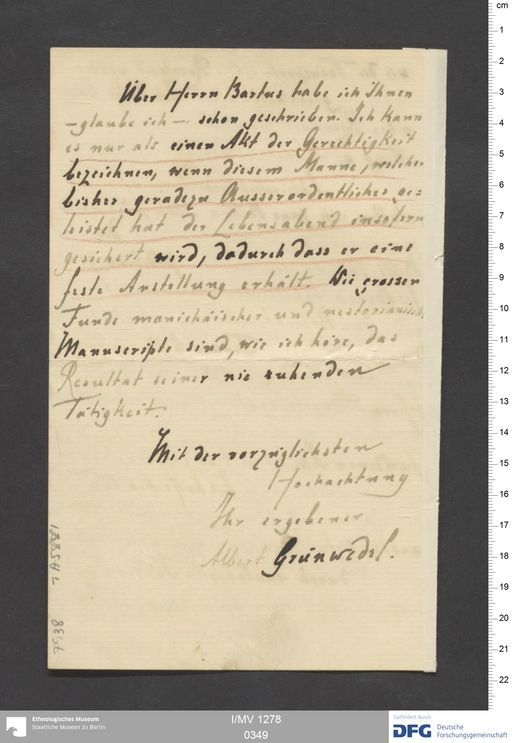 Über Herrn Bartus habe ich Ihnen
– glaube ich – schon geschrieben. Ich kann
es nur als einen Akt der Gerechtigkeit
bezeichnen, wenn diesem Manne, welcher
bisher geradezu Ausserordentliches ge=
leistet hat der Lebensabend insofern
gesichert wird, dadurch dass er eine
feste Anstellung erhält. Die grossen
Funde manichäischer und nestorianisch.
Manuscripte sind, wie ich höre, das
Resultat seiner nie ruhenden
Tätigkeit.
Mit der vorzüglichsten
Hochachtung
Ihr ergebener
Albert Grünwedel.
7538
cm
1
2
3
4
5
6
7
8
9
10
11
12
13
14
15
16
17
18
19
20
21
22
Ethnologisches Museum
Staatliche Museen zu Berlin
I/MV 1278
0349
Gefördert durch
DFG Deutsche
Forschungsgemeinschaft